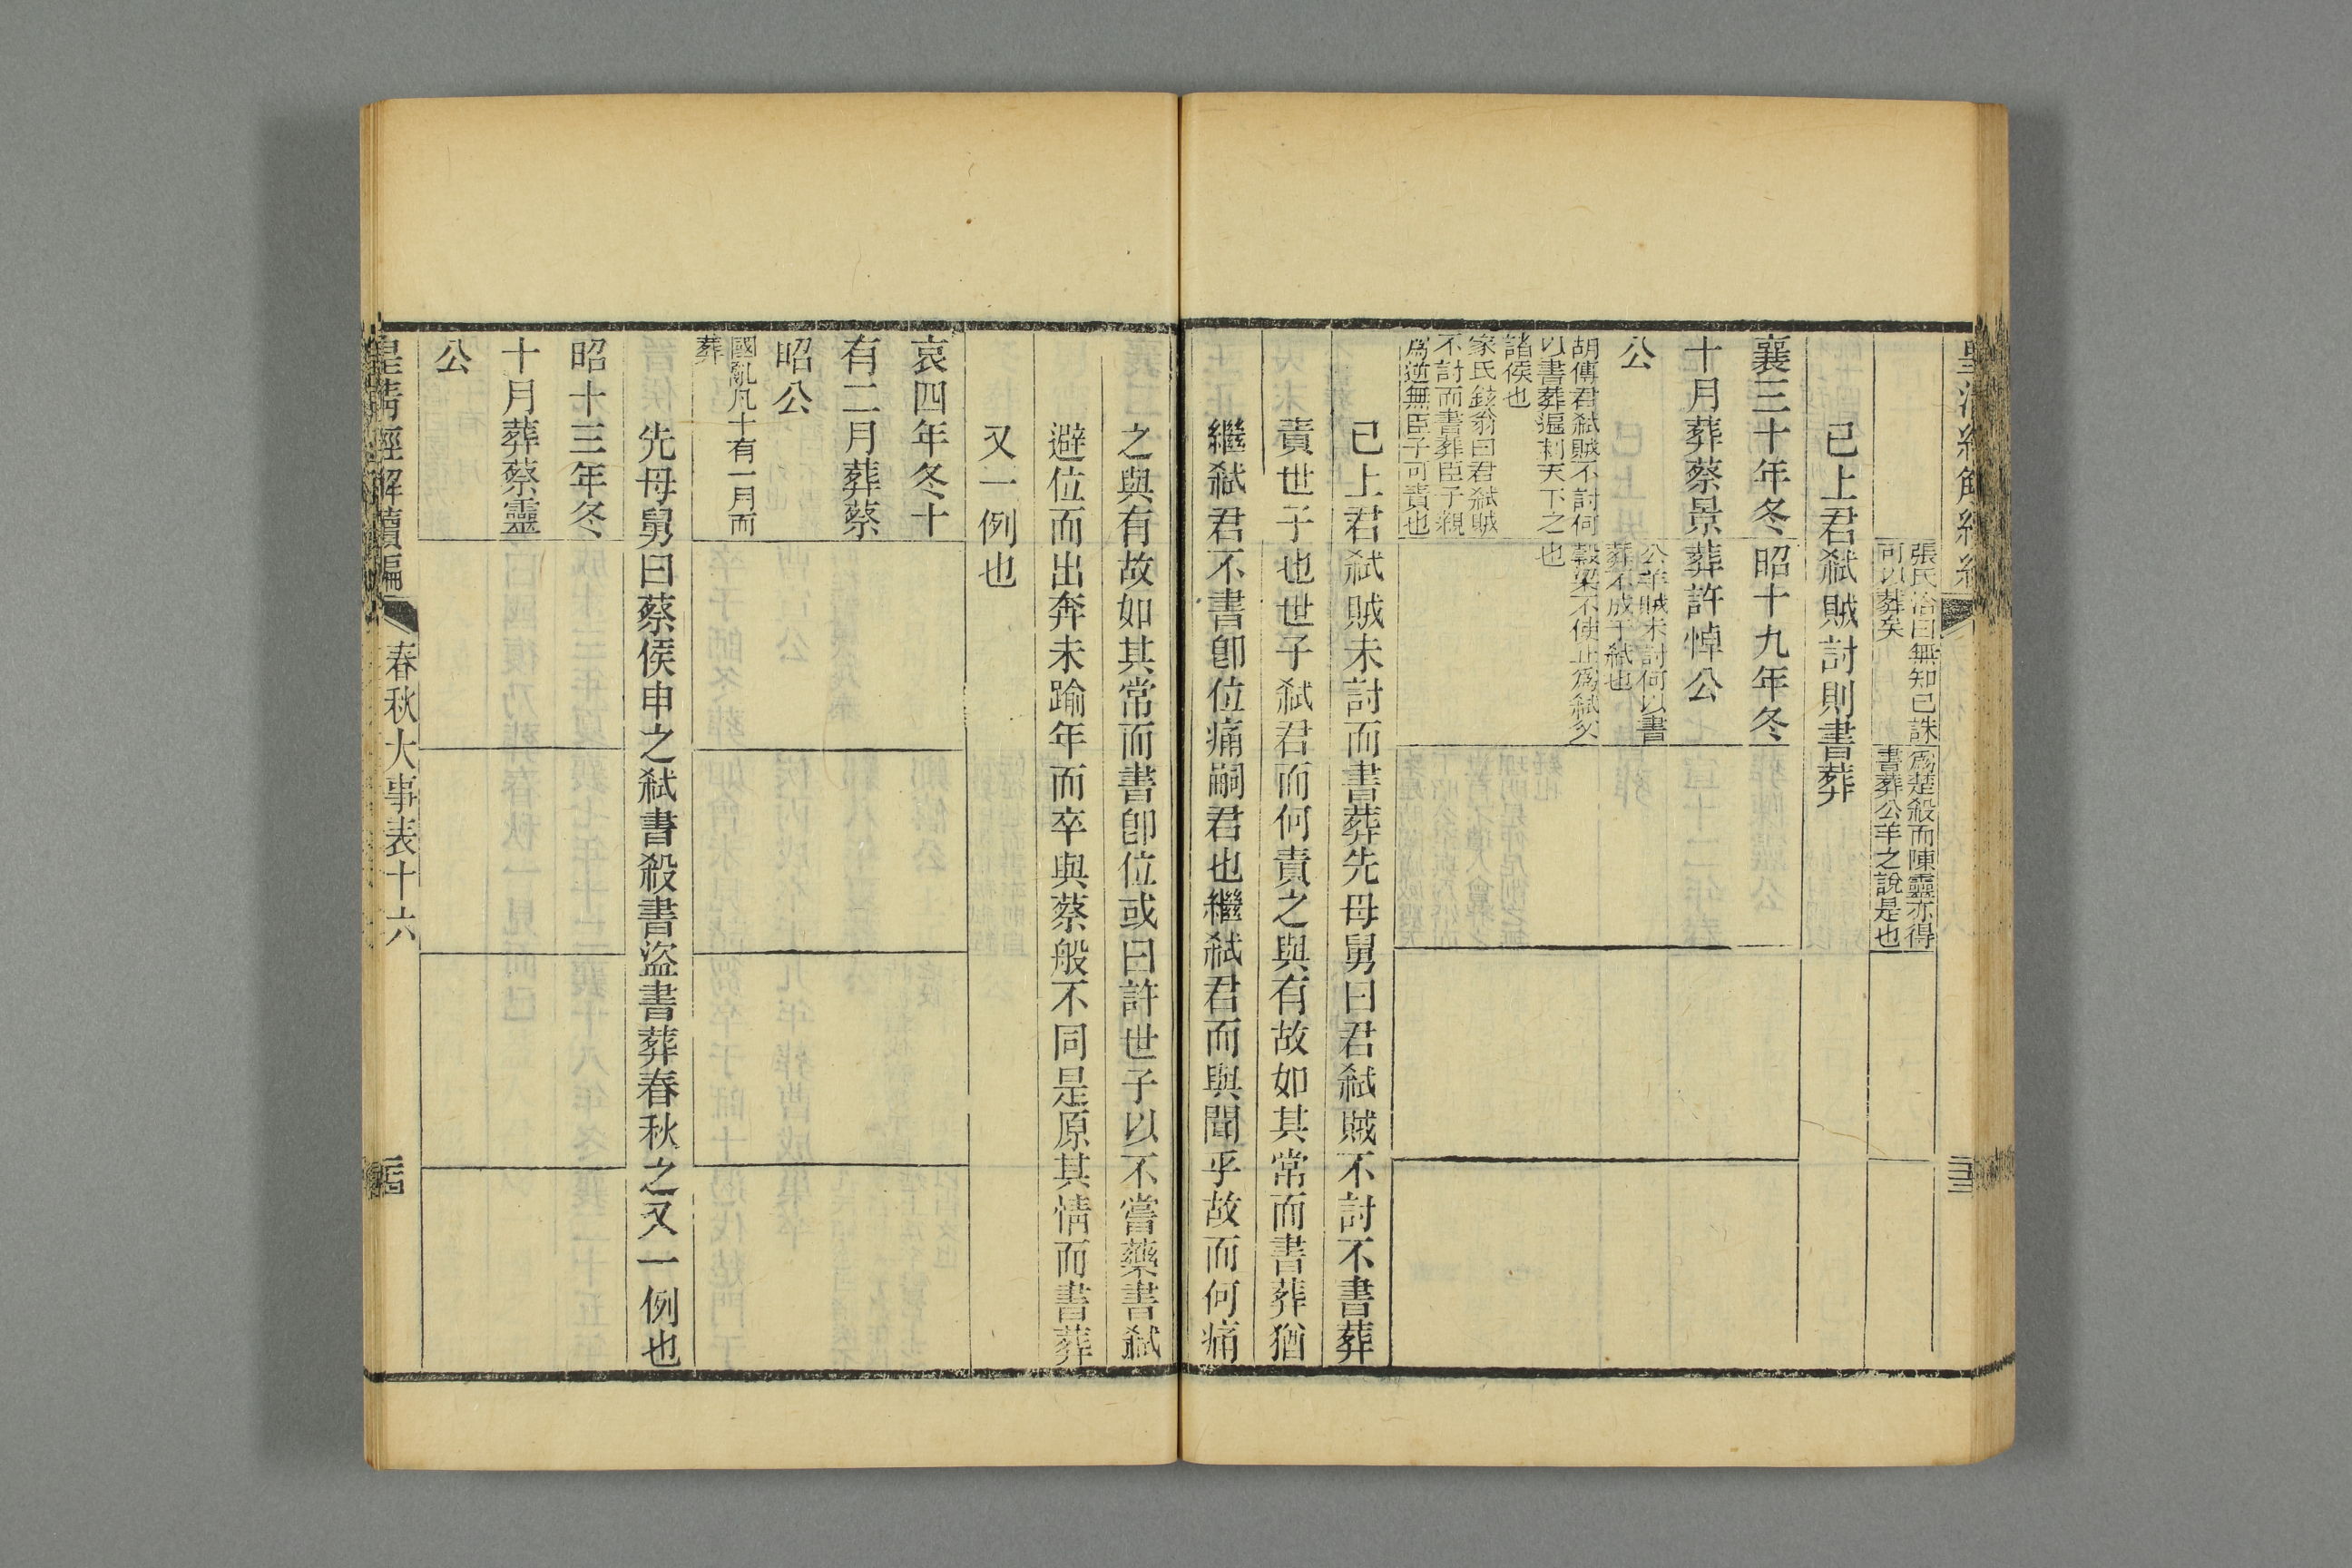 張氏洽曰無知已誅
可以葬矣
爲楚殺而陳靈亦得
書葬公羊之說是也
已上君弒賊討則書葬
襄三十年冬
十月葬蔡景
公
胡傳君弒賊不討何
以書葬遍刺天下之
諸侯也
家氏鉉翁曰君弒賊
不討而書葬臣子親
爲逆無臣子可責也
昭十九年冬
葬許悼公
公羊賊未討何以書
葬不成于弒也
穀梁不使止爲弒父
也
已上君弒賊未討而書葬先母舅曰君弒賊不討不書葬
責世子也世子弒君而何責之與有故如其常而書葬猶
繼弒君不書卽位痛嗣君也繼弒君而與聞乎故而何痛
之與有故如其常而書卽位或曰許世子以不嘗藥書弒
避位而出奔未踰年而卒與蔡般不同是原其情而書葬
又一例也
哀四年冬十
有二月葬蔡
昭公
國亂凡十有一月而
葬
先母舅曰蔡侯申之弒書殺書盜書葬春秋之又一例也
昭十三年冬
十月葬蔡靈
公
皇淸經解續編
春秋大事表十六